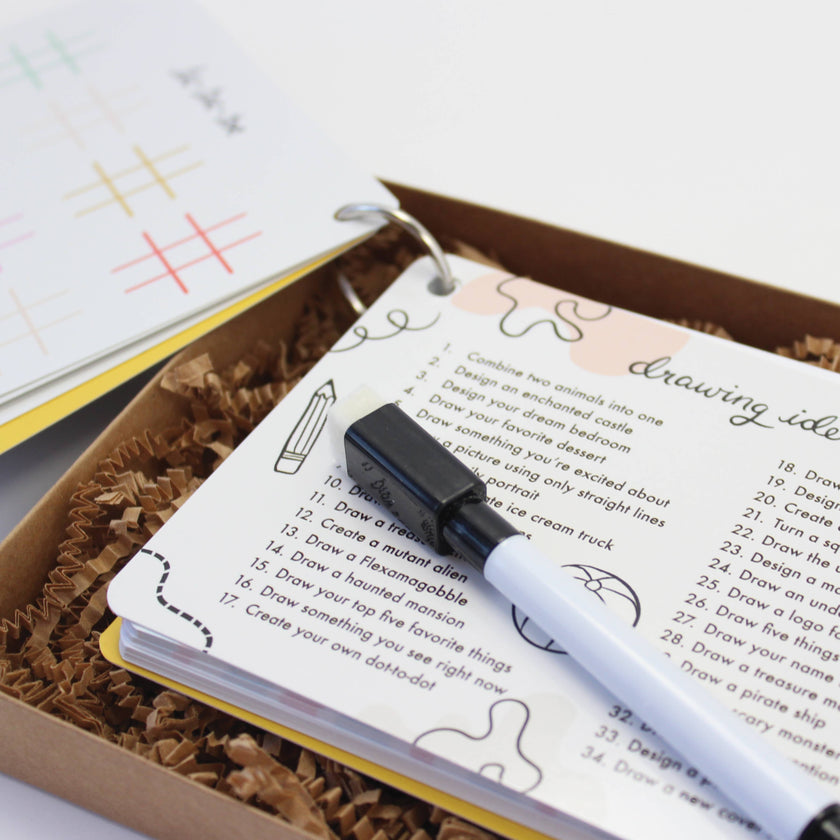 drawing ide
1. Combine two animals into one
2. Design an enchanted castle
3. Design your dream bedroom
4. Draw your favorite dessert
Draw something you're excited about
a picture using only straight lines
portrait
ice cream truck
10. Draw
11. Draw a
12. Create a mutant alien
13. Draw a Flexamagobble
14. Draw a haunted mansion
15. Draw your top five favorite things
16. Draw something you see right now
17. Create your own dot-to-dot
18. Draw
19. Design
20. Create
21. Turn a
22. Draw the
23. Design a
24. Draw an
25. Draw a logo
26. Draw five things
27. Draw your name
28. Draw a treasure
Draw a pirate ship
scary monster
32.
33. Design a
34. Draw a new